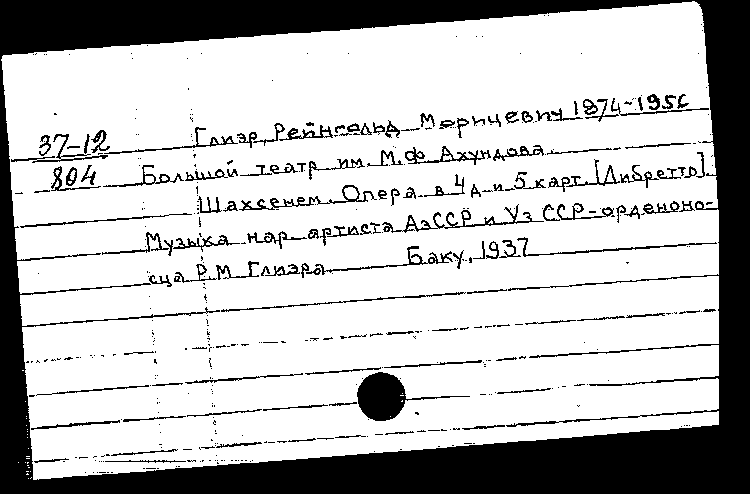 37-12
804
Глиэр, Рейнгольд Морицевич 1874-1956
Большой театр им. М.Ф Ахундова.
Шахсенем. Опера в 4 д и 5 карт. [Либретто].
Музыка нар артиста АзССР и Уз ССР-орденоно-
сца Р.М Глиэра Баку, 1937